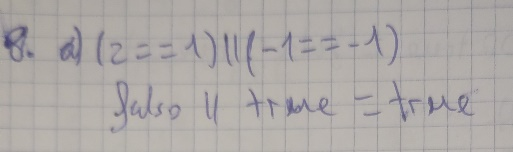 8. a) (2==1)||(-1==-1)
falso || true = true